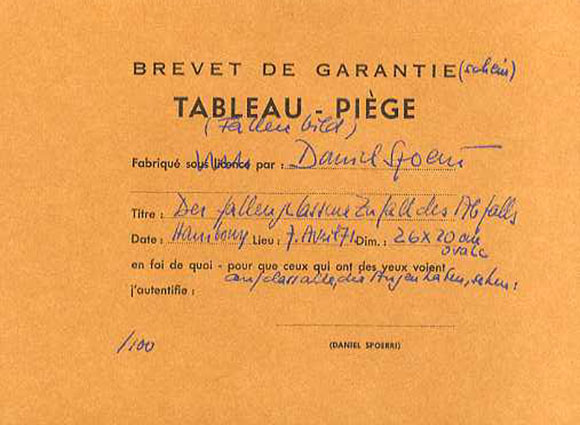 BREVET DE GARANTIE (schein)
TABLEAU - PIÈGE
(Fallenbild)
Fabriqué sous licence par : Daniel Spoerri
Titre : Der fallengelassene Zufall des Abfalls
Date : Hamburg Lieu : 7. April 71 Dim. : 26 x 20 cm
ovale
en foi de quoi - pour que ceux qui ont des yeux voient
auf dass alle, die Augen haben, sehen :
j'autentifie :
/100
(DANIEL SPOERRI)